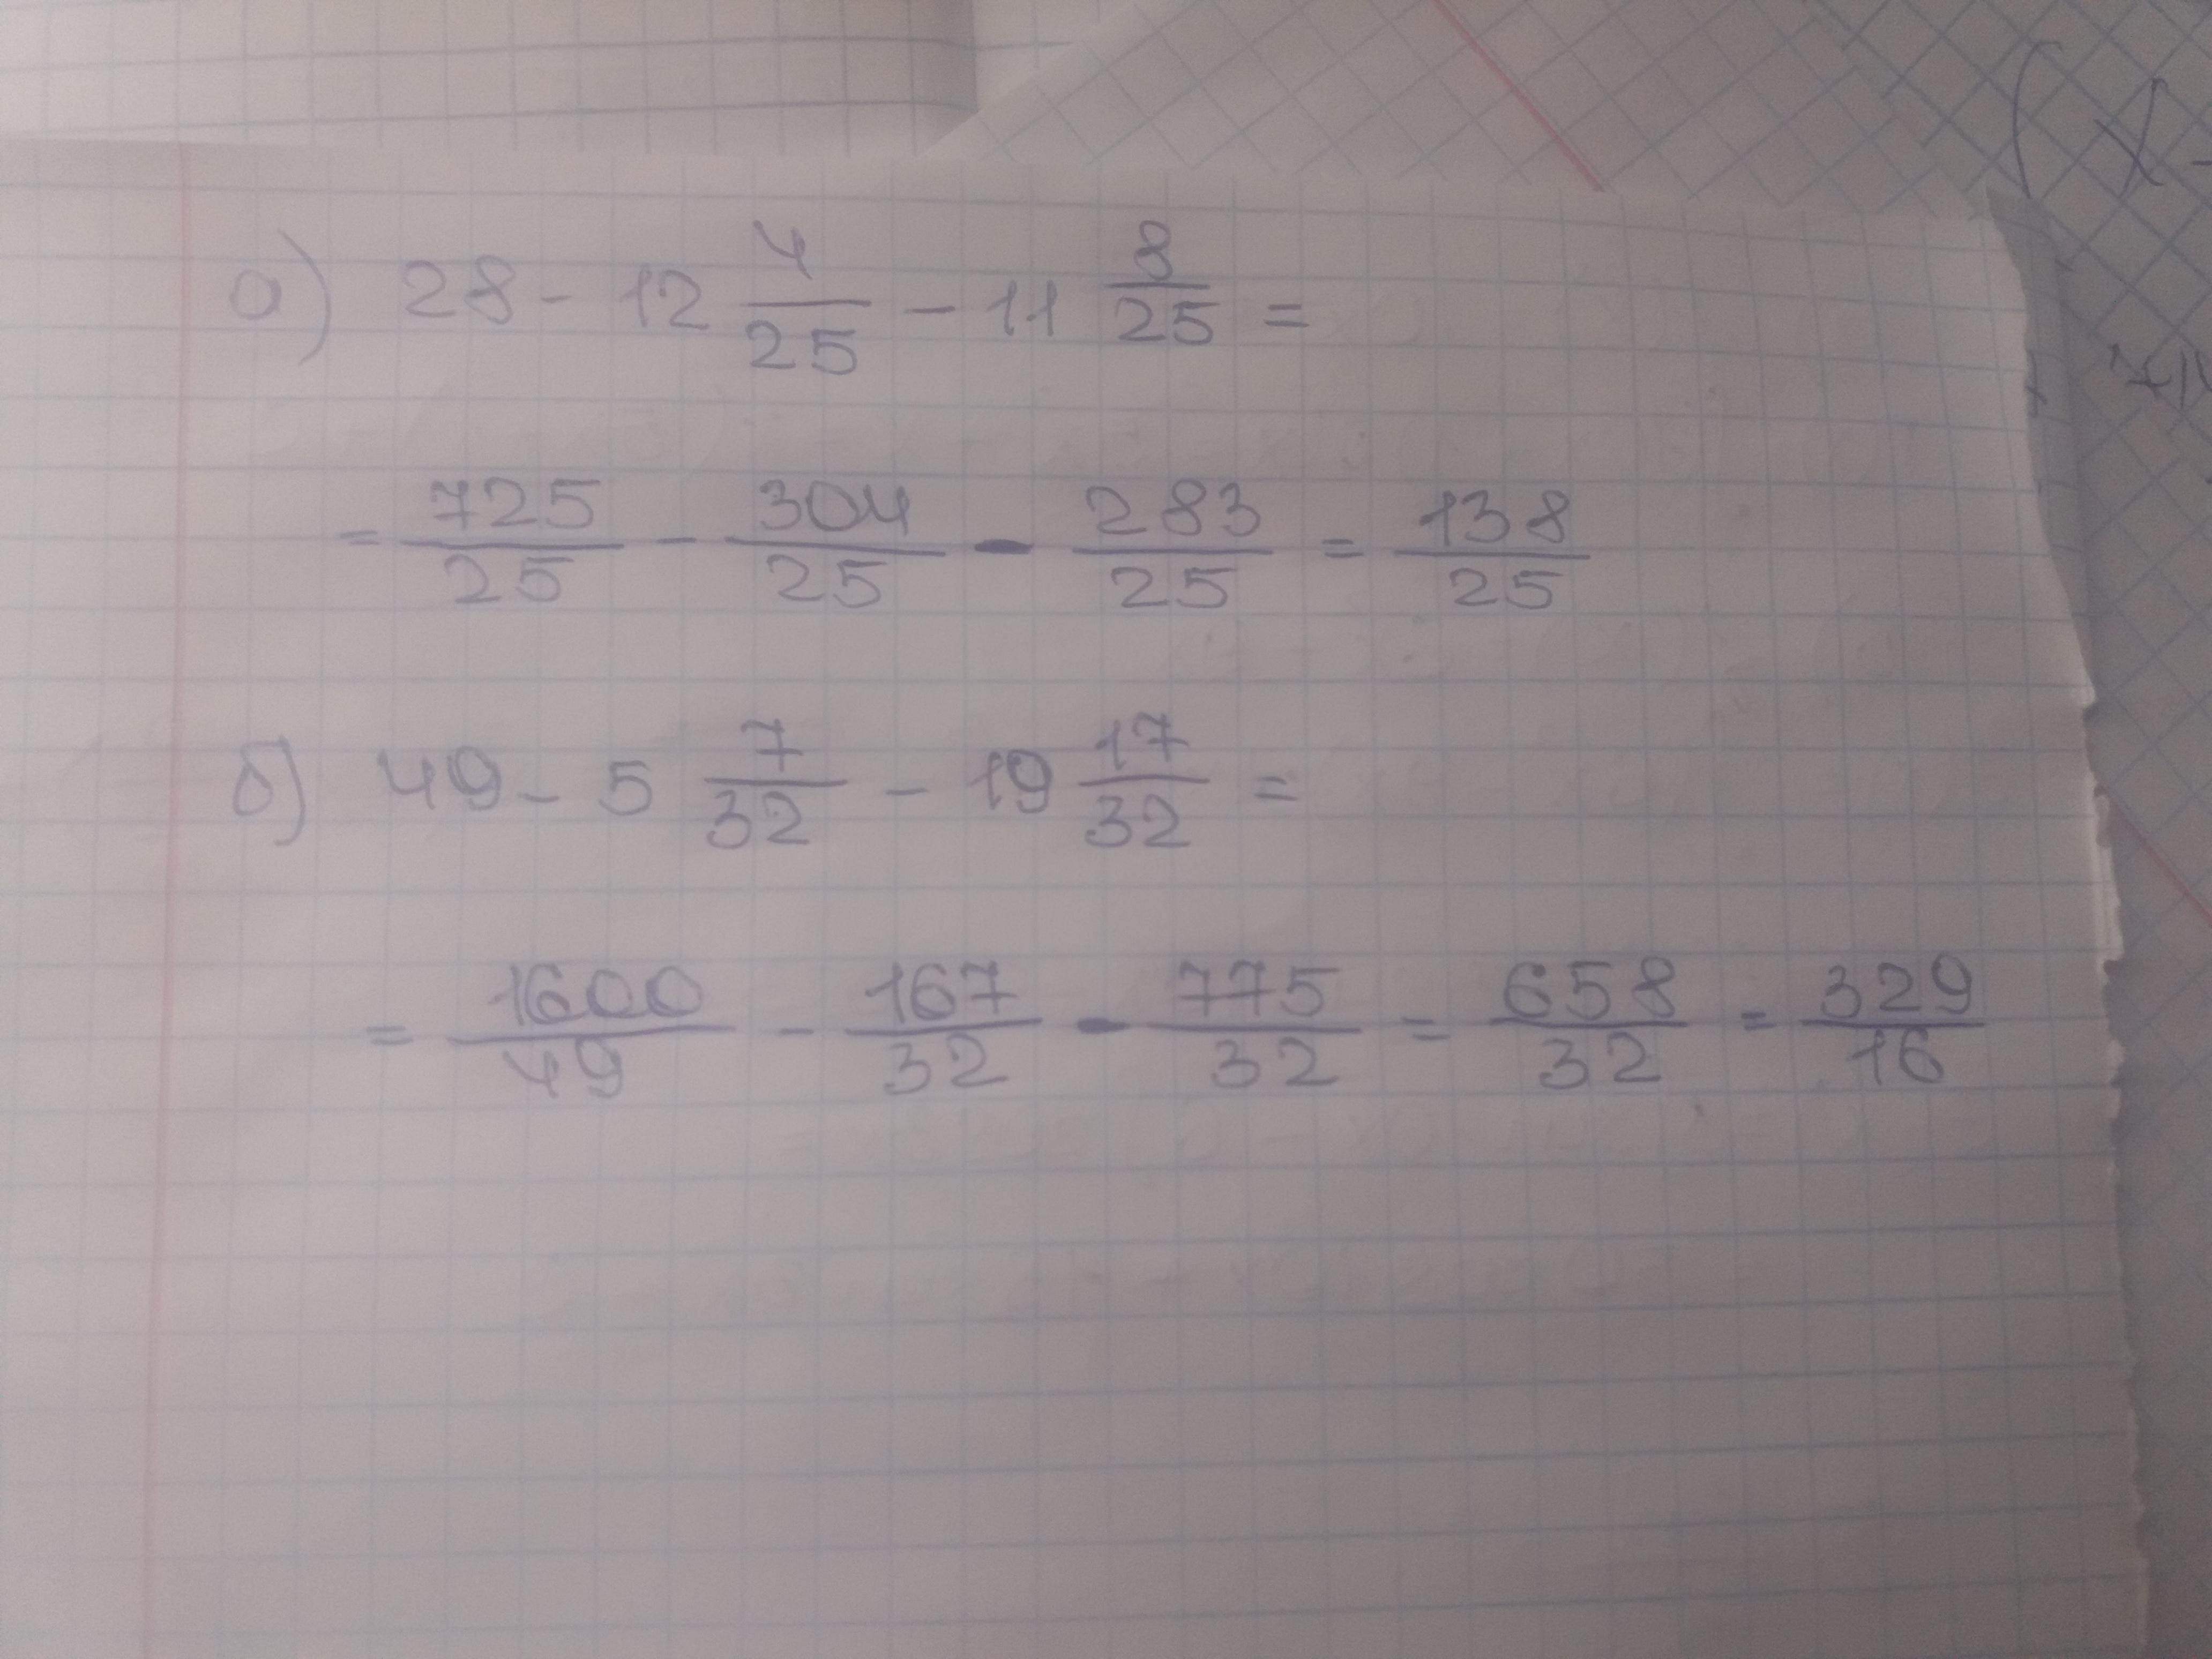 а) 28 - 12 4/25 - 11 8/25 =
= 725/25 - 304/25 - 283/25 = 138/25
б) 49 - 5 7/32 - 19 17/32 =
= 1600/49 - 167/32 - 775/32 = 658/32 = 329/16
(x -